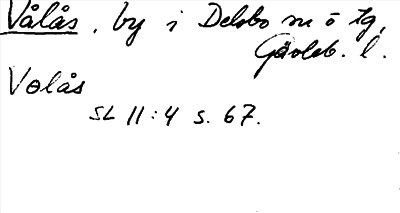 Vålås, by i Delsbo sn o tg,
Gävleb. l.
Volås
SL 11:4 s. 67.